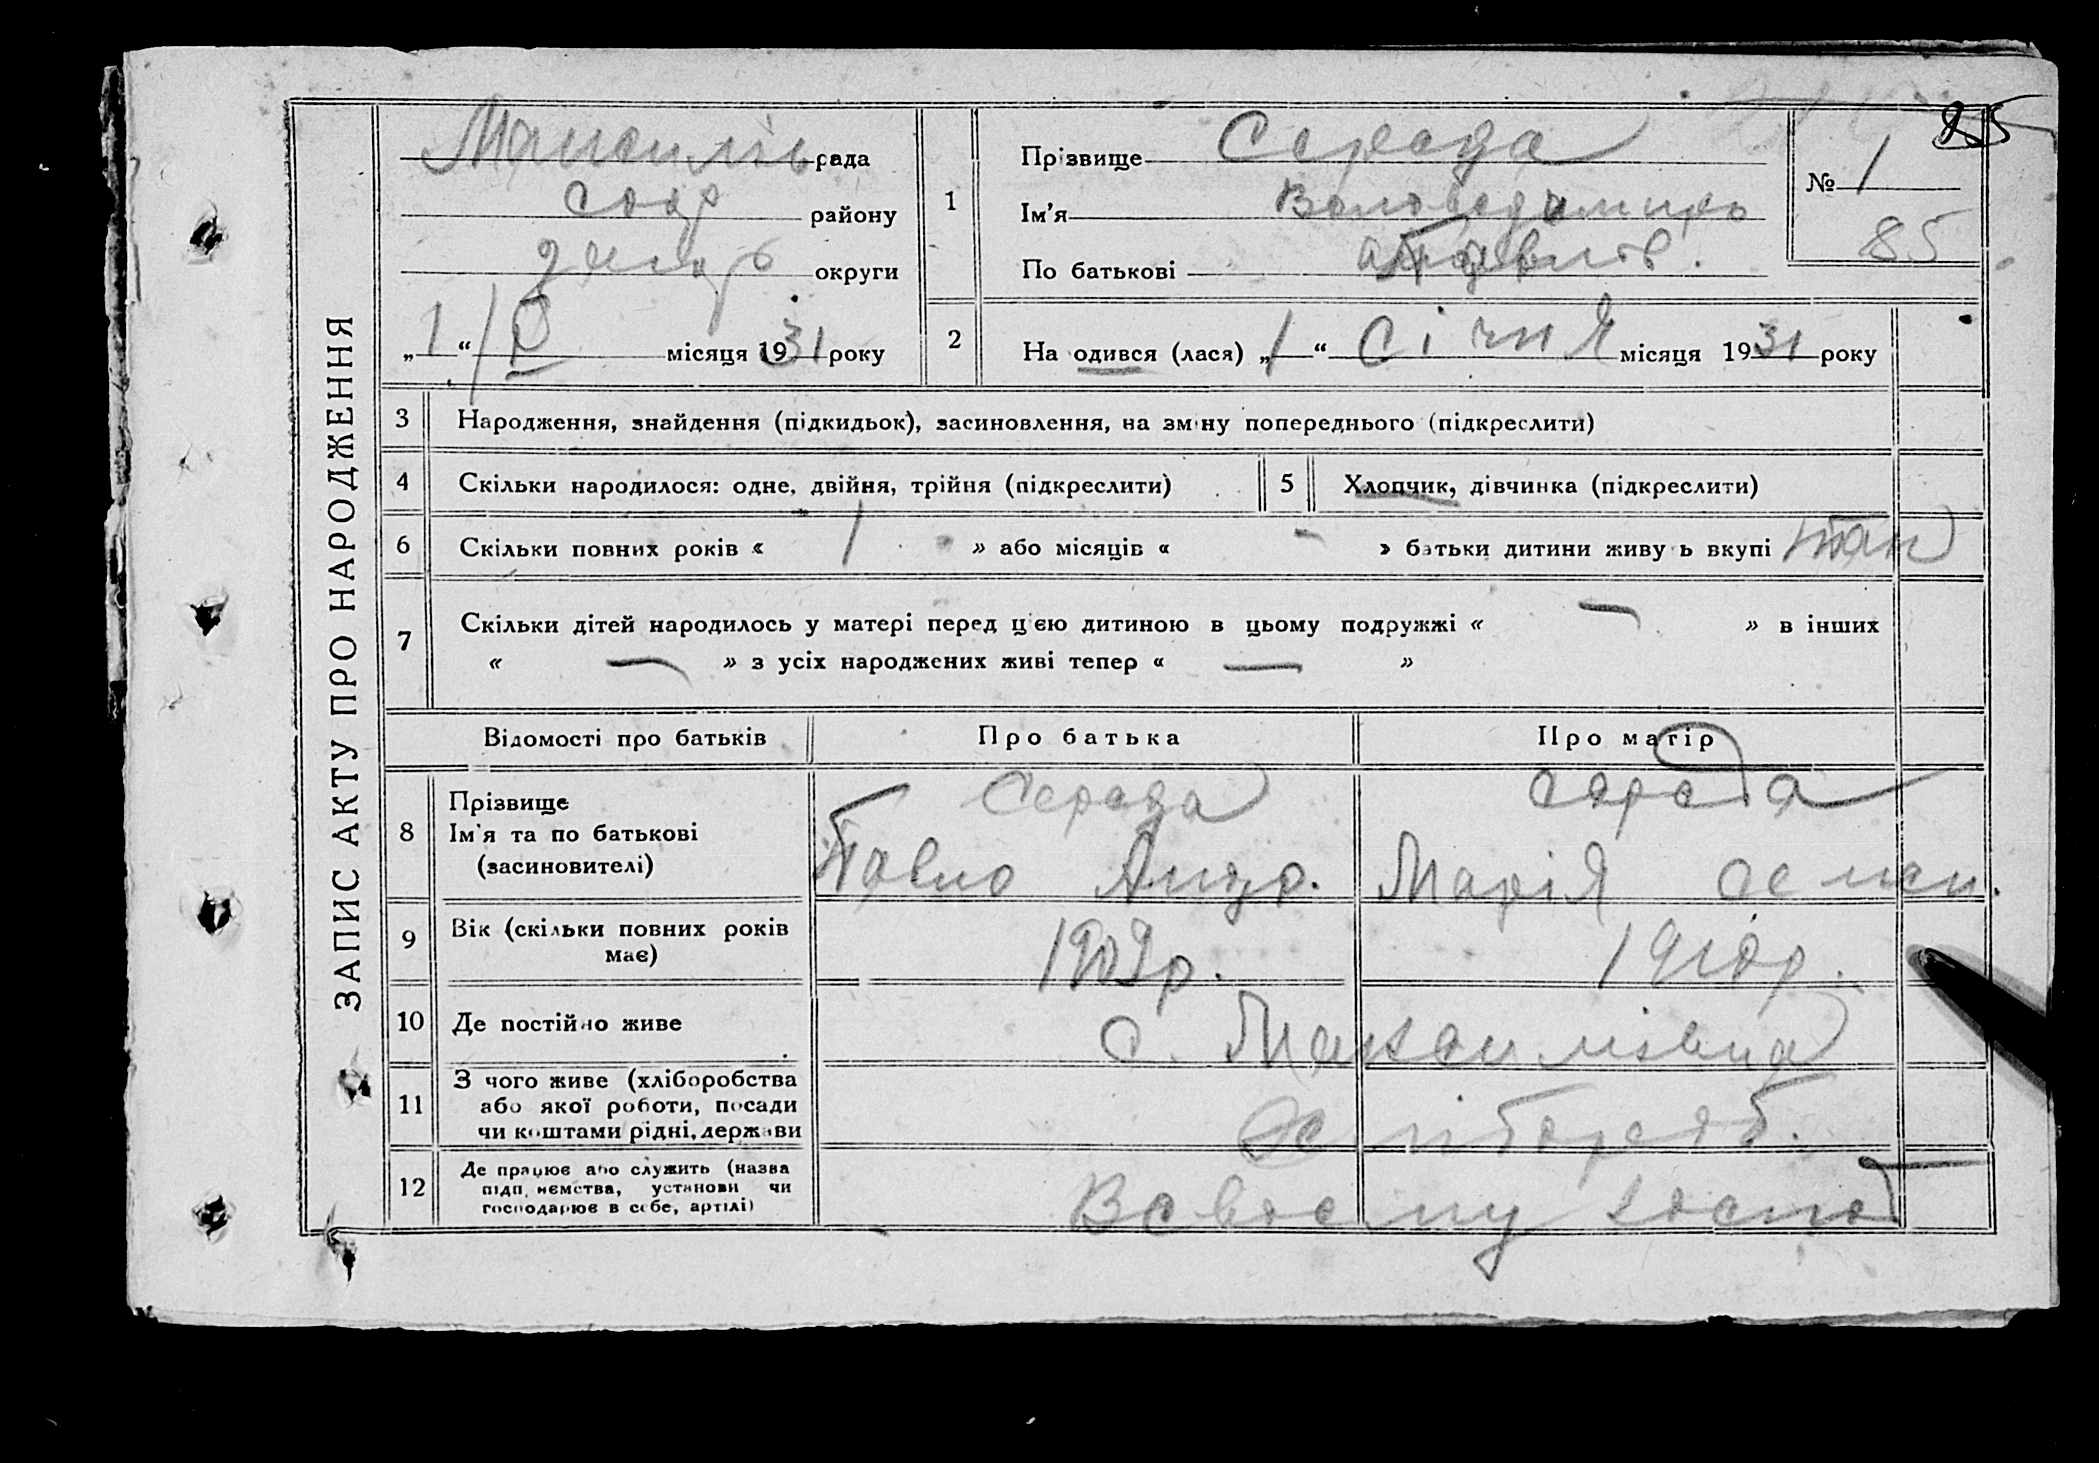 ЗАПИС АКТУ ПРО НАРОДЖЕННЯ
85
рада
району
округи
„1“ місяця 1931 року
1
Прізвище Середа
Ім'я Володимиръ
По батькові
№ 1
85
2
На одився (лася) „1“ Січня місяця 1931 року
3 Народження, знайдення (підкидьок), засиновлення, на зміну попереднього (підкреслити)
4 Скільки народилося: одне, двійня, трійня (підкреслити)
5 Хлопчик, дівчинка (підкреслити)
6 Скільки повних років « 1 » або місяців « - » батьки дитини живу ь вкупі так
7 Скільки дітей народилось у матері перед цією дитиною в цьому подружжі « — » в інших
« — » з усіх народжених живі тепер « — »
Відомості про батьків
Про батька
Про матір
8
Прізвище
Ім'я та по батькові
(засиновителі)
Середа
Павло Андр.
Середа
Марія
9
Вік (скільки повних років має)
1909р.
1910р.
10
Де постійно живе
с. Максимівка
11
З чого живе (хліборобства
або якої роботи, посади
чи коштами рідні, держави
Хлібороб.
12
Де працює або служить (назва
підп. иємства, установи чи
господарює в себе, артілі)
В своєму госпо